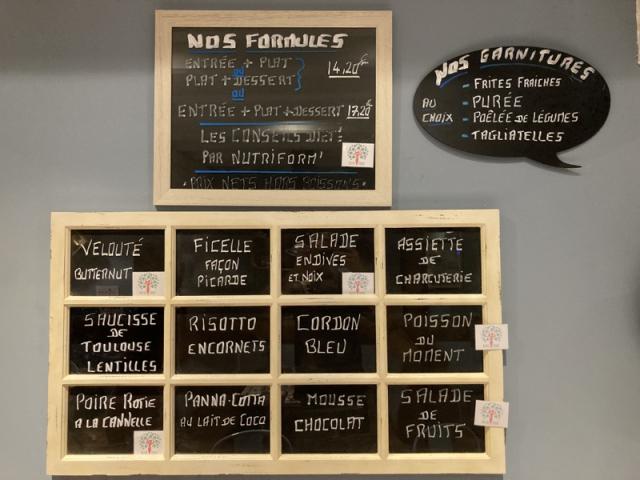 NOS FORMULES
ENTRÉE + PLAT
ou
PLAT + DESSERT
14,20€
ou
ENTRÉE + PLAT + DESSERT 17,20€
LES CONSEILS DIET:
PAR NUTRIFORM'
• PRIX NETS HORS BOISSONS •
NOS GARNITURES
AU CHOIX
- FRITES FRAICHES
- PURÉE
- POÊLÉE DE LÉGUMES
- TAGLIATELLES
VELOUTÉ
BUTTERNUT
FICELLE
FAÇON
PICARDE
SALADE
ENDIVES
ET NOIX
ASSIETTE
DE
CHARCUTERIE
SAUCISSE
DE
TOULOUSE
LENTILLES
RISOTTO
ENCORNETS
CORDON
BLEU
POISSON
DU
MOMENT
POIRE ROTIE
A LA CANNELLE
PANNA-COTTA
AU LAIT DE COCO
MOUSSE
CHOCOLAT
SALADE
DE
FRUITS